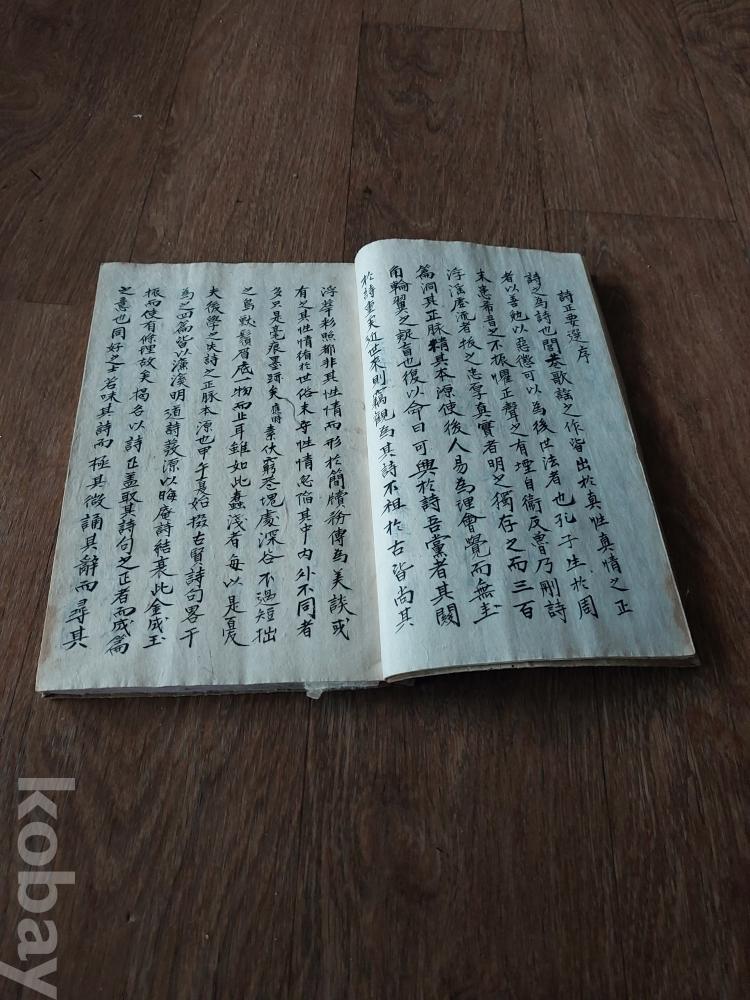 詩正要選序
詩之為詩也閭巷歌謠之作皆出於真性真情之正
者以善勉以惡懲可以為後世法者也孔子生於周
末患希音之不振懼正聲之有埋自衛反魯乃刪詩
浮淫麽流者拔之忠厚真實者明之獨存之而三百
篇洞其正脉精其本源使後人易為理會覺而無
角輪翼之疑旨也復以命曰可興於詩吾黨者其闕
於詩盡矣近世來則竊觀為其詩不祖於古皆尚其
浮華彩照都非其性情而形於簡牘務傳為美談或
有之其性情循於世俗未守性情忽焰其中內外不同者
多只是毫痕墨跡矣應時素伏窮巷塊處深谷不過短拙
之鳥獸鬚眉底一物而止耳雖如此蠢淺者每以是憂
夫後學之失詩之正脉本源也甲午夏始掇古賢詩句畧干
為之四篇皆以濂溪明道詩發源以晦庵詩結裹此金成玉
振而使有條理故矣揭名以詩正盖取其詩句之正者而成篇
之意也同好之士若味其詩而極其微誦其辭而尋其
kobay